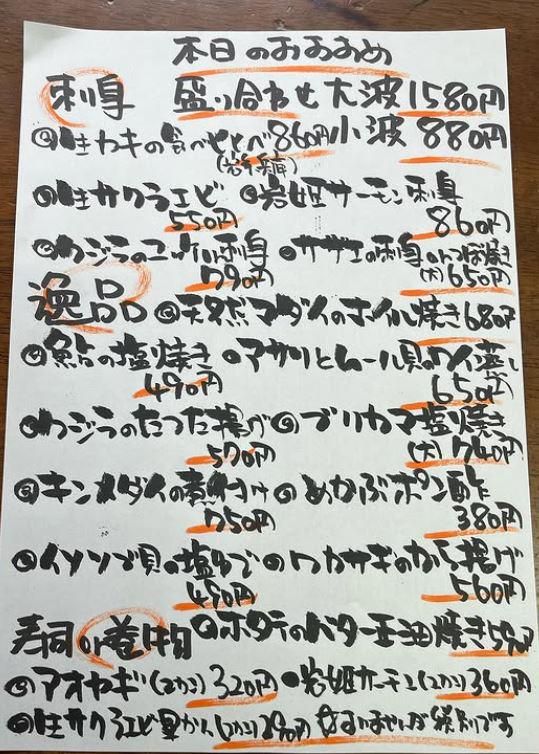 本日のおすすめ
刺身 盛り合わせ 大波 1580円
生カキの食べくらべ 860円 小波 880円
(岩手 兵庫)
生サクラエビ 550円 岩姫サーモン刺身 860円
クジラのユッケ 刺身 790円 サザエの刺身 or つぼ焼き (大) 650円
逸品 天然マダイのホイル焼き 680円
鮎の塩焼き 490円 アサリとムール貝のワイン蒸し 650円
クジラのたつた揚げ 570円 ブリカマ塩焼き (大) 740円
キンメダイの煮付け 750円 めかぶポン酢 380円
イソツブ貝の塩ゆで 490円 ワカサギのから揚げ 560円
寿司 or 巻物 ホタテのバター正油焼き
アオヤギ (2カン) 320円 岩姫サーモン (2カン) 360円
生サクラエビ軍かん (2カン) 390円